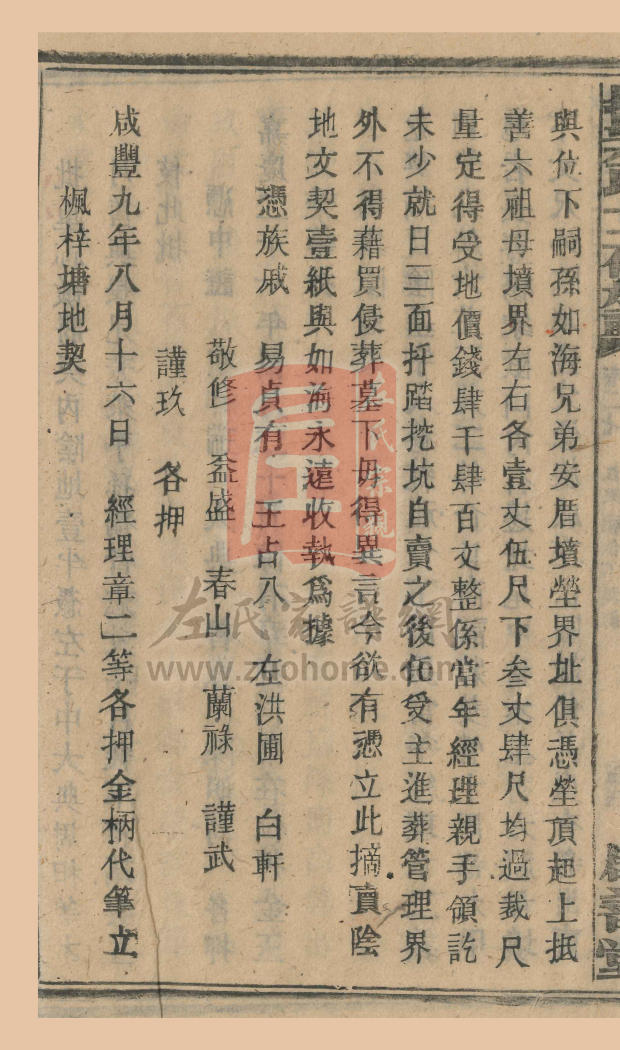 與位下嗣孫如海兄弟安厝墳塋界址俱憑塋頂起上抵
善六祖母墳界左右各壹丈伍尺下叁丈肆尺均過裁尺
量定得受地價錢肆千肆百文整係當年經理親手領訖
未少就日三面扦踏挖坑自賣之後任受主進葬管理界
外不得藉買侵葬墓下毋得異言今欲有憑立此摘賣陰
地文契壹紙與如海永遠收執爲據
憑族戚 易貞有 王占八 左洪圃 白軒
敬修 益盛 春山 蘭祿 謹武
謹玖 各押
咸豐九年八月十六日 經理章二等各押金柄代筆立
楓梓塘地契
左氏家譜網
www.zuohome.com